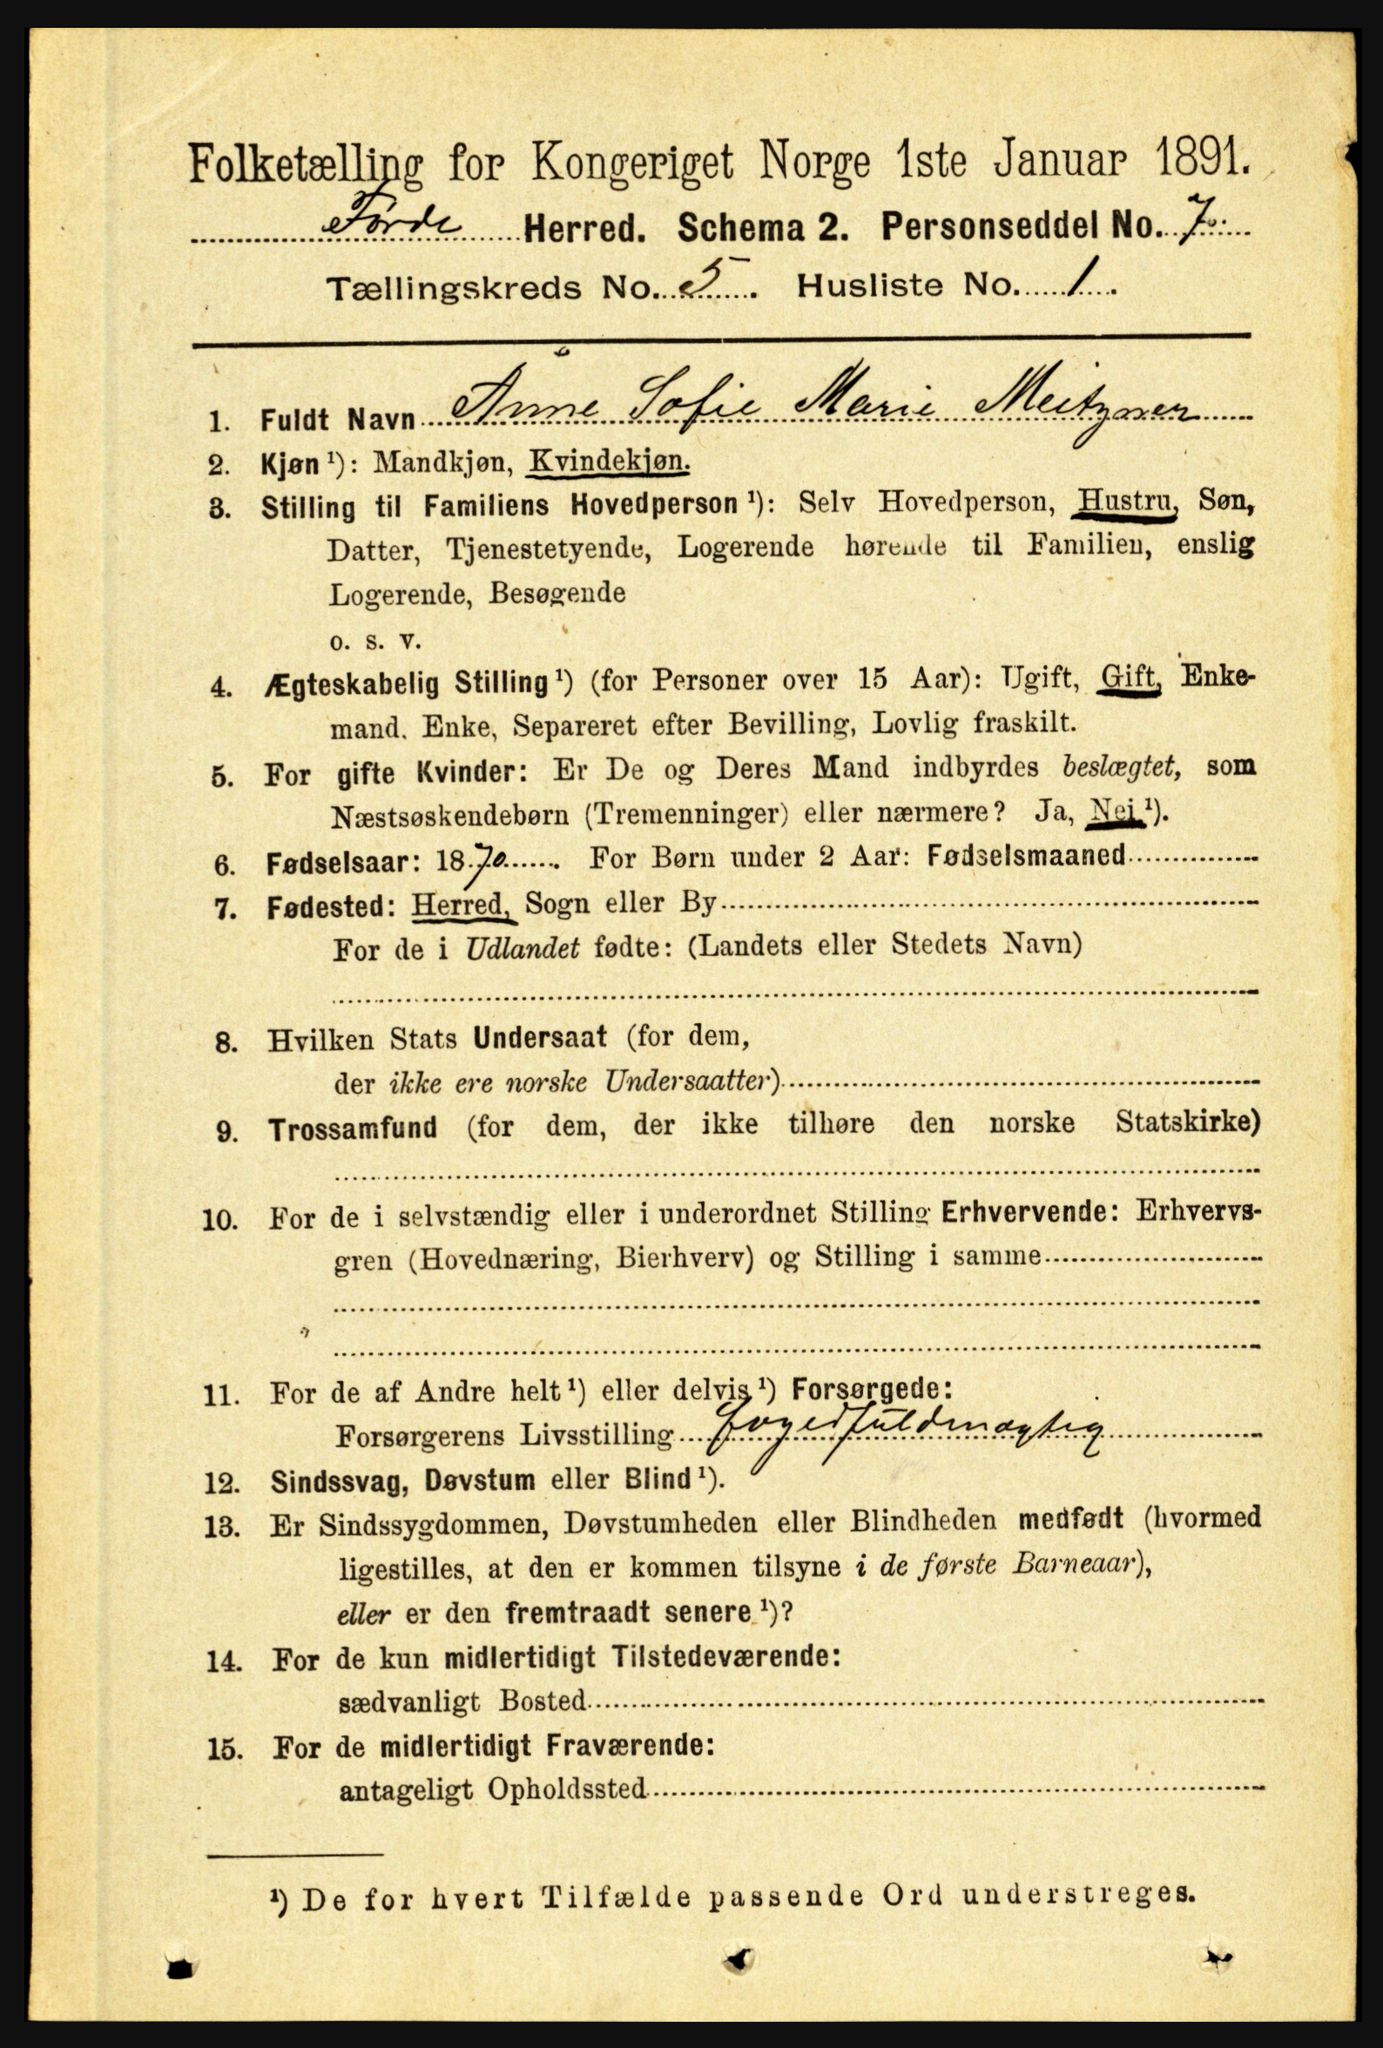 Folketælling for Kongeriget Norge 1ste Januar 1891.
Førde Herred. Schema 2. Personseddel No. 7.
Tællingskreds No. 5. Husliste No. 1.
1. Fuldt Navn Anne Sofie Marie Meitzner
2. Kjøn ¹): Mandkjøn, Kvindekjøn.
3. Stilling til Familiens Hovedperson ¹): Selv Hovedperson, Hustru, Søn,
Datter, Tjenestetyende, Logerende hørende til Familien, enslig
Logerende, Besøgende
o. s. v.
4. Ægteskabelig Stilling ¹) (for Personer over 15 Aar): Ugift, Gift, Enke-
mand. Enke, Separeret efter Bevilling, Lovlig fraskilt.
5. For gifte Kvinder: Er De og Deres Mand indbyrdes beslægtet, som
Næstsøskendebørn (Tremenninger) eller nærmere? Ja, Nej ¹).
6. Fødselsaar: 1870. For Børn under 2 Aar: Fødselsmaaned
7. Fødested: Herred, Sogn eller By
For de i Udlandet fødte: (Landets eller Stedets Navn)
8. Hvilken Stats Undersaat (for dem,
der ikke ere norske Undersaatter)
9. Trossamfund (for dem, der ikke tilhøre den norske Statskirke)
10. For de i selvstændig eller i underordnet Stilling Erhvervende: Erhvervs-
gren (Hovednæring, Bierhverv) og Stilling i samme
11. For de af Andre helt ¹) eller delvis ¹) Forsørgede:
Forsørgerens Livsstilling Fogedfuldmægtig
12. Sindssvag, Døvstum eller Blind ¹).
13. Er Sindssygdommen, Døvstumheden eller Blindheden medfødt (hvormed
ligestilles, at den er kommen tilsyne i de første Barneaar),
eller er den fremtraadt senere ¹)?
14. For de kun midlertidigt Tilstedeværende:
sædvanligt Bosted
15. For de midlertidigt Fraværende:
antageligt Opholdssted
¹) De for hvert Tilfælde passende Ord understreges.